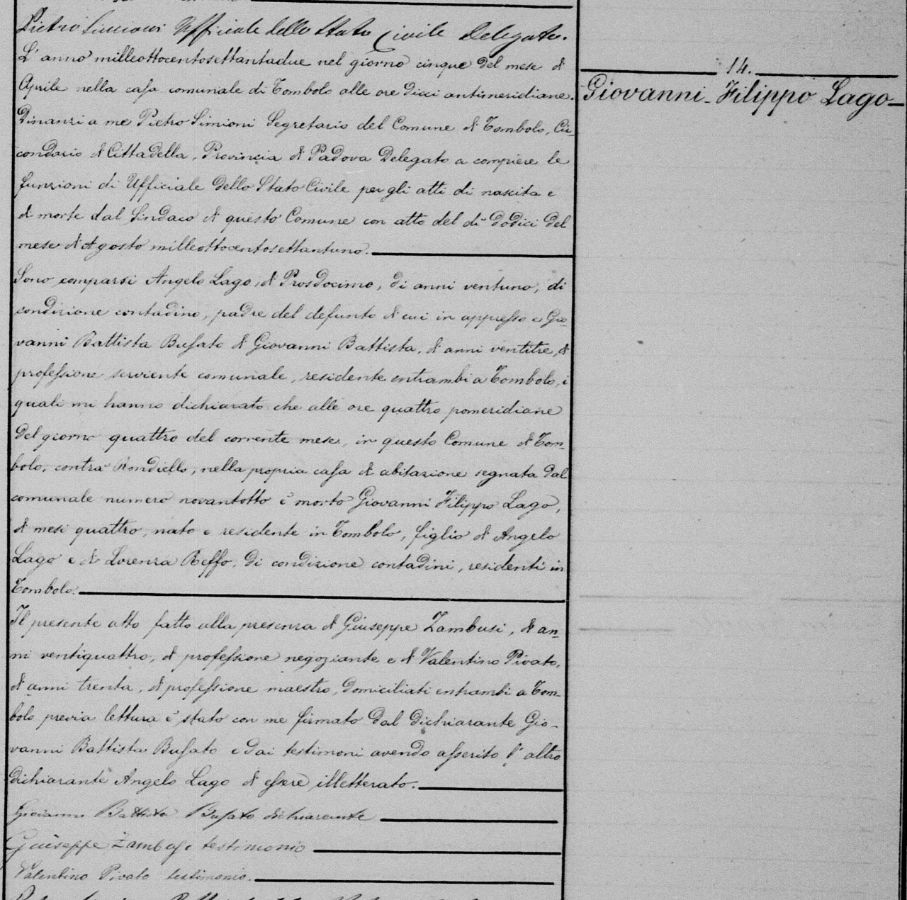 Pietro Simioni Ufficiale dello Stato Civile Delegato.
L'anno milleottocentosettantadue nel giorno cinque del mese di
Aprile nella casa comunale di Tombolo alle ore dieci antimeridiane.
Dinanzi a me Pietro Simioni Segretario del Comune di Tombolo, Cir
condario di Cittadella, Provincia di Padova Delegato a compiere le
funzioni di Ufficiale dello Stato Civile per gli atti di nascita e
di morte dal Sindaco di questo Comune con atto del dì dodici del
mese di Agosto milleottocentosettantuno.
Sono comparsi Angelo Lago, di Prosdocimo, di anni ventuno, di
condizione contadino, padre del defunto di cui in appresso e Gio
vanni Battista Busato di Giovanni Battista, di anni ventitre, di
professione serviente comunale, residente entrambi a Tombolo, i
quali mi hanno dichiarato che alle ore quattro pomeridiane
del giorno quattro del corrente mese, in questo Comune di Tom
bolo, contrà Rondiello, nella propria casa di abitazione segnata dal
comunale numero novantotto è morto Giovanni Filippo Lago,
di mesi quattro, nato e residente in Tombolo, figlio di Angelo
Lago e di Lorenza Reffo, di condizione contadini, residenti in
Tombolo.
Il presente atto fatto alla presenza di Giuseppe Zambusi, di an
ni ventiquattro, di professione negoziante e di Valentino Pivato,
di anni trenta, di professione maestro, domiciliati entrambi a Tom
bolo previa lettura è stato con me firmato dal dichiarante Gio-
vanni Battista Busato e dai testimoni avendo asserito l'altro
dichiarante Angelo Lago di essere illetterato.
Giovanni Battista Busato dichiarante
Giuseppe Zambusi testimonio
Valentino Pivato testimonio.
14.
Giovanni Filippo Lago